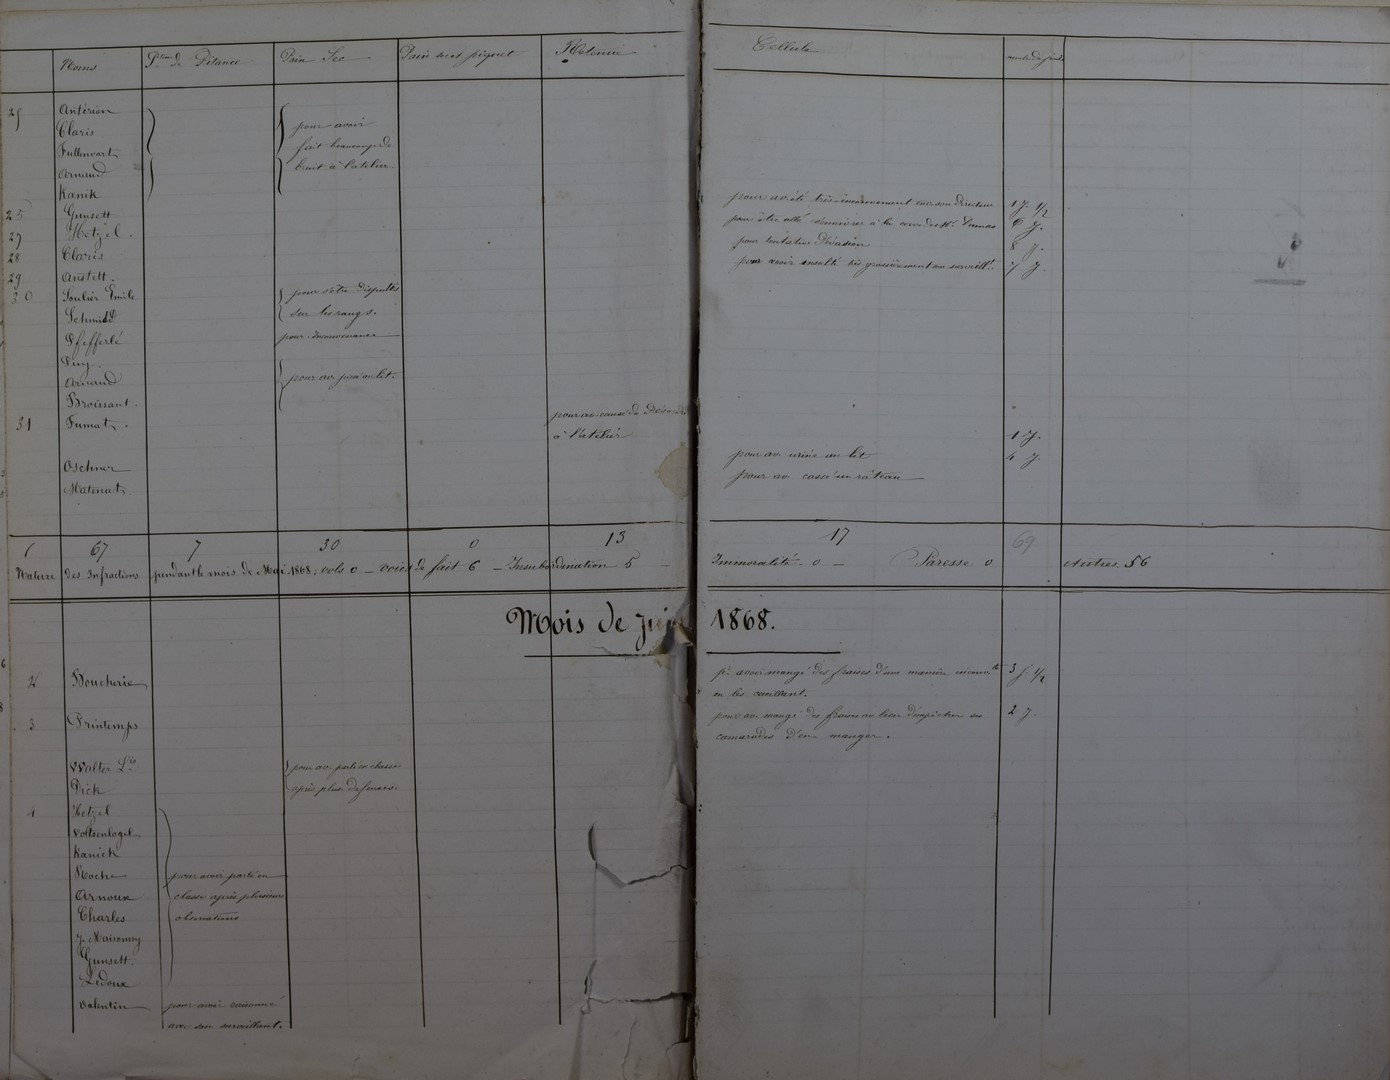 Noms Pain Sec Pain sec et piquet Retenue Cellule
25 Antérion
Claris pour avoir
Fullenwart fait beaucoup de
Arnaud bruit à l'atelier
Kanik
25 Gunsett pour av. été très inconvenant av. son Directeur 1 j. 1/2
27 Hetzel. pour être allé 6 j.
28 Claris pour tentative d'évasion 8 j.
29 Anstett. pour avoir insulté très grossièrement son surveillt. 7 j.
30 Soulier Emile pour s'être disputés
Schmidt sur les rangs.
Pfefferlé pour inconvenance
Puy
Arnaud pour av. pissé au lit.
Broissant
31 Fumat. pour av. causé du Désordre
à l'atelier 1 j.
Oschner pour av. uriné au lit 4 j.
Matenat pour av. cassé un râteau
67 7 30 0 13 17 69
Nature des Infractions pendant le mois de Mai 1868: vols 0 — voies de fait 6 — Insubordination 5 — Immoralité 0 — Paresse 0 Autres 56
Mois de Juin 1868.
2 Boucherie pr. avoir mangé des fraises d'une manière 3 j. 1/2
en les cueillant.
3 Printemps pour av. mangé des fraises au lieu d'empêcher ses 2 j.
camarades d'en manger.
Walter Ls. pour av. parlé en classe
Dick après plus. défenses.
4 Hetzel
Voltsenlogel
Kanick
Roche pour avoir parlé en
Arnoux classe après plusieurs
Charles observations
J. Maisonny
Gunsett.
Ledoux
Valentin pour avoir raisonné
avec son surveillant.